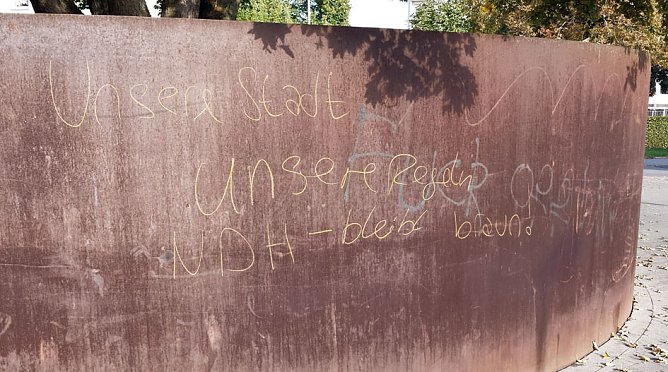 Unsere Stadt
Unsere Regeln
NDH - bleibt braun